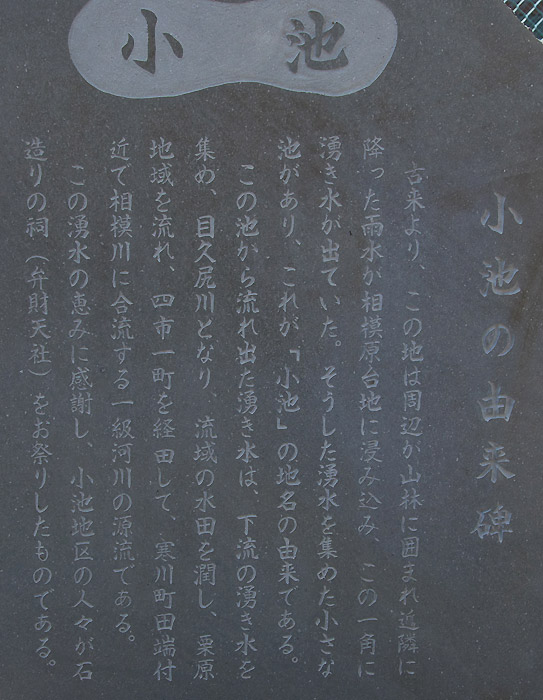 小池
小池の由来碑
古来より、この地は周辺が山林に囲まれ近隣に
降った雨水が相模原台地に浸み込み、この一角に
湧き水が出ていた。そうした湧水を集めた小さな
池があり、これが「小池」の地名の由来である。
この池から流れ出た湧き水は、下流の湧き水を
集め、目久尻川となり、流域の水田を潤し、栗原
地域を流れ、四市一町を経田して、寒川町田端付
近で相模川に合流する一級河川の源流である。
この湧水の恵みに感謝し、小池地区の人々が石
造りの祠（弁財天社）をお祭りしたものである。